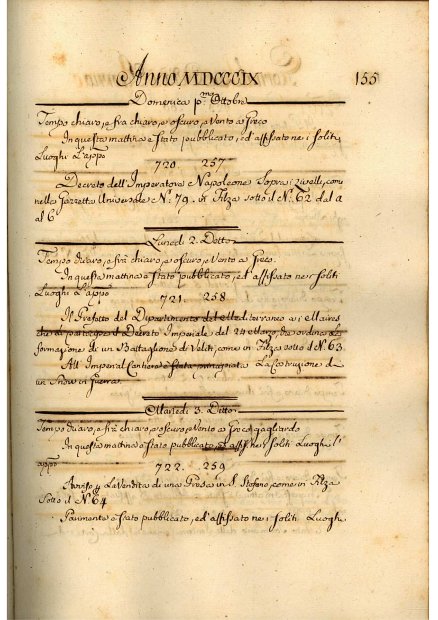 Anno MDCCCIX 155
Domenica p.mo Ottobre
Tempo chiaro, e fra chiaro, e oscuro, e Vento a Greco
In questa mattina è stato pubblicato, ed affissato nei soliti
Luoghi L'appo
720. 257
Decreto dell'Imperatore Napoleone Sopra i Livelli, come
nella Gazzetta Universale N.o 79. in Filza sotto il N.o 62 dal a
al 6
Lunedi 2. Detto
Tempo chiaro, e frà chiaro, e oscuro, e Vento a Greco.
In questa mattina è stato pubblicato, ed affissato nei soliti
Luoghi L'appo
721. 258
Il Prefetto del Dipartimento del Mediterraneo ai Maires
Decreto Imperiale del 24 Marzo,
formazione di un Battaglione di Veliti, come in Filza sotto il N. 63
All'Imperial Cantiere è stata principiata La Costruzione di
un in Guerra.
Martedi 3. Detto
Tempo chiaro, e frà chiaro, e oscuro, e Vento a Greco gagliardo
In questa mattina è stato pubblicato, ed affisso nei soliti Luoghi l'
appo
722. 259
Avviso p La Vendita di una in S. Stefano, come in Filza
Sotto il N.o 64
Parimente è stato pubblicato, ed affissato nei soliti Luoghi